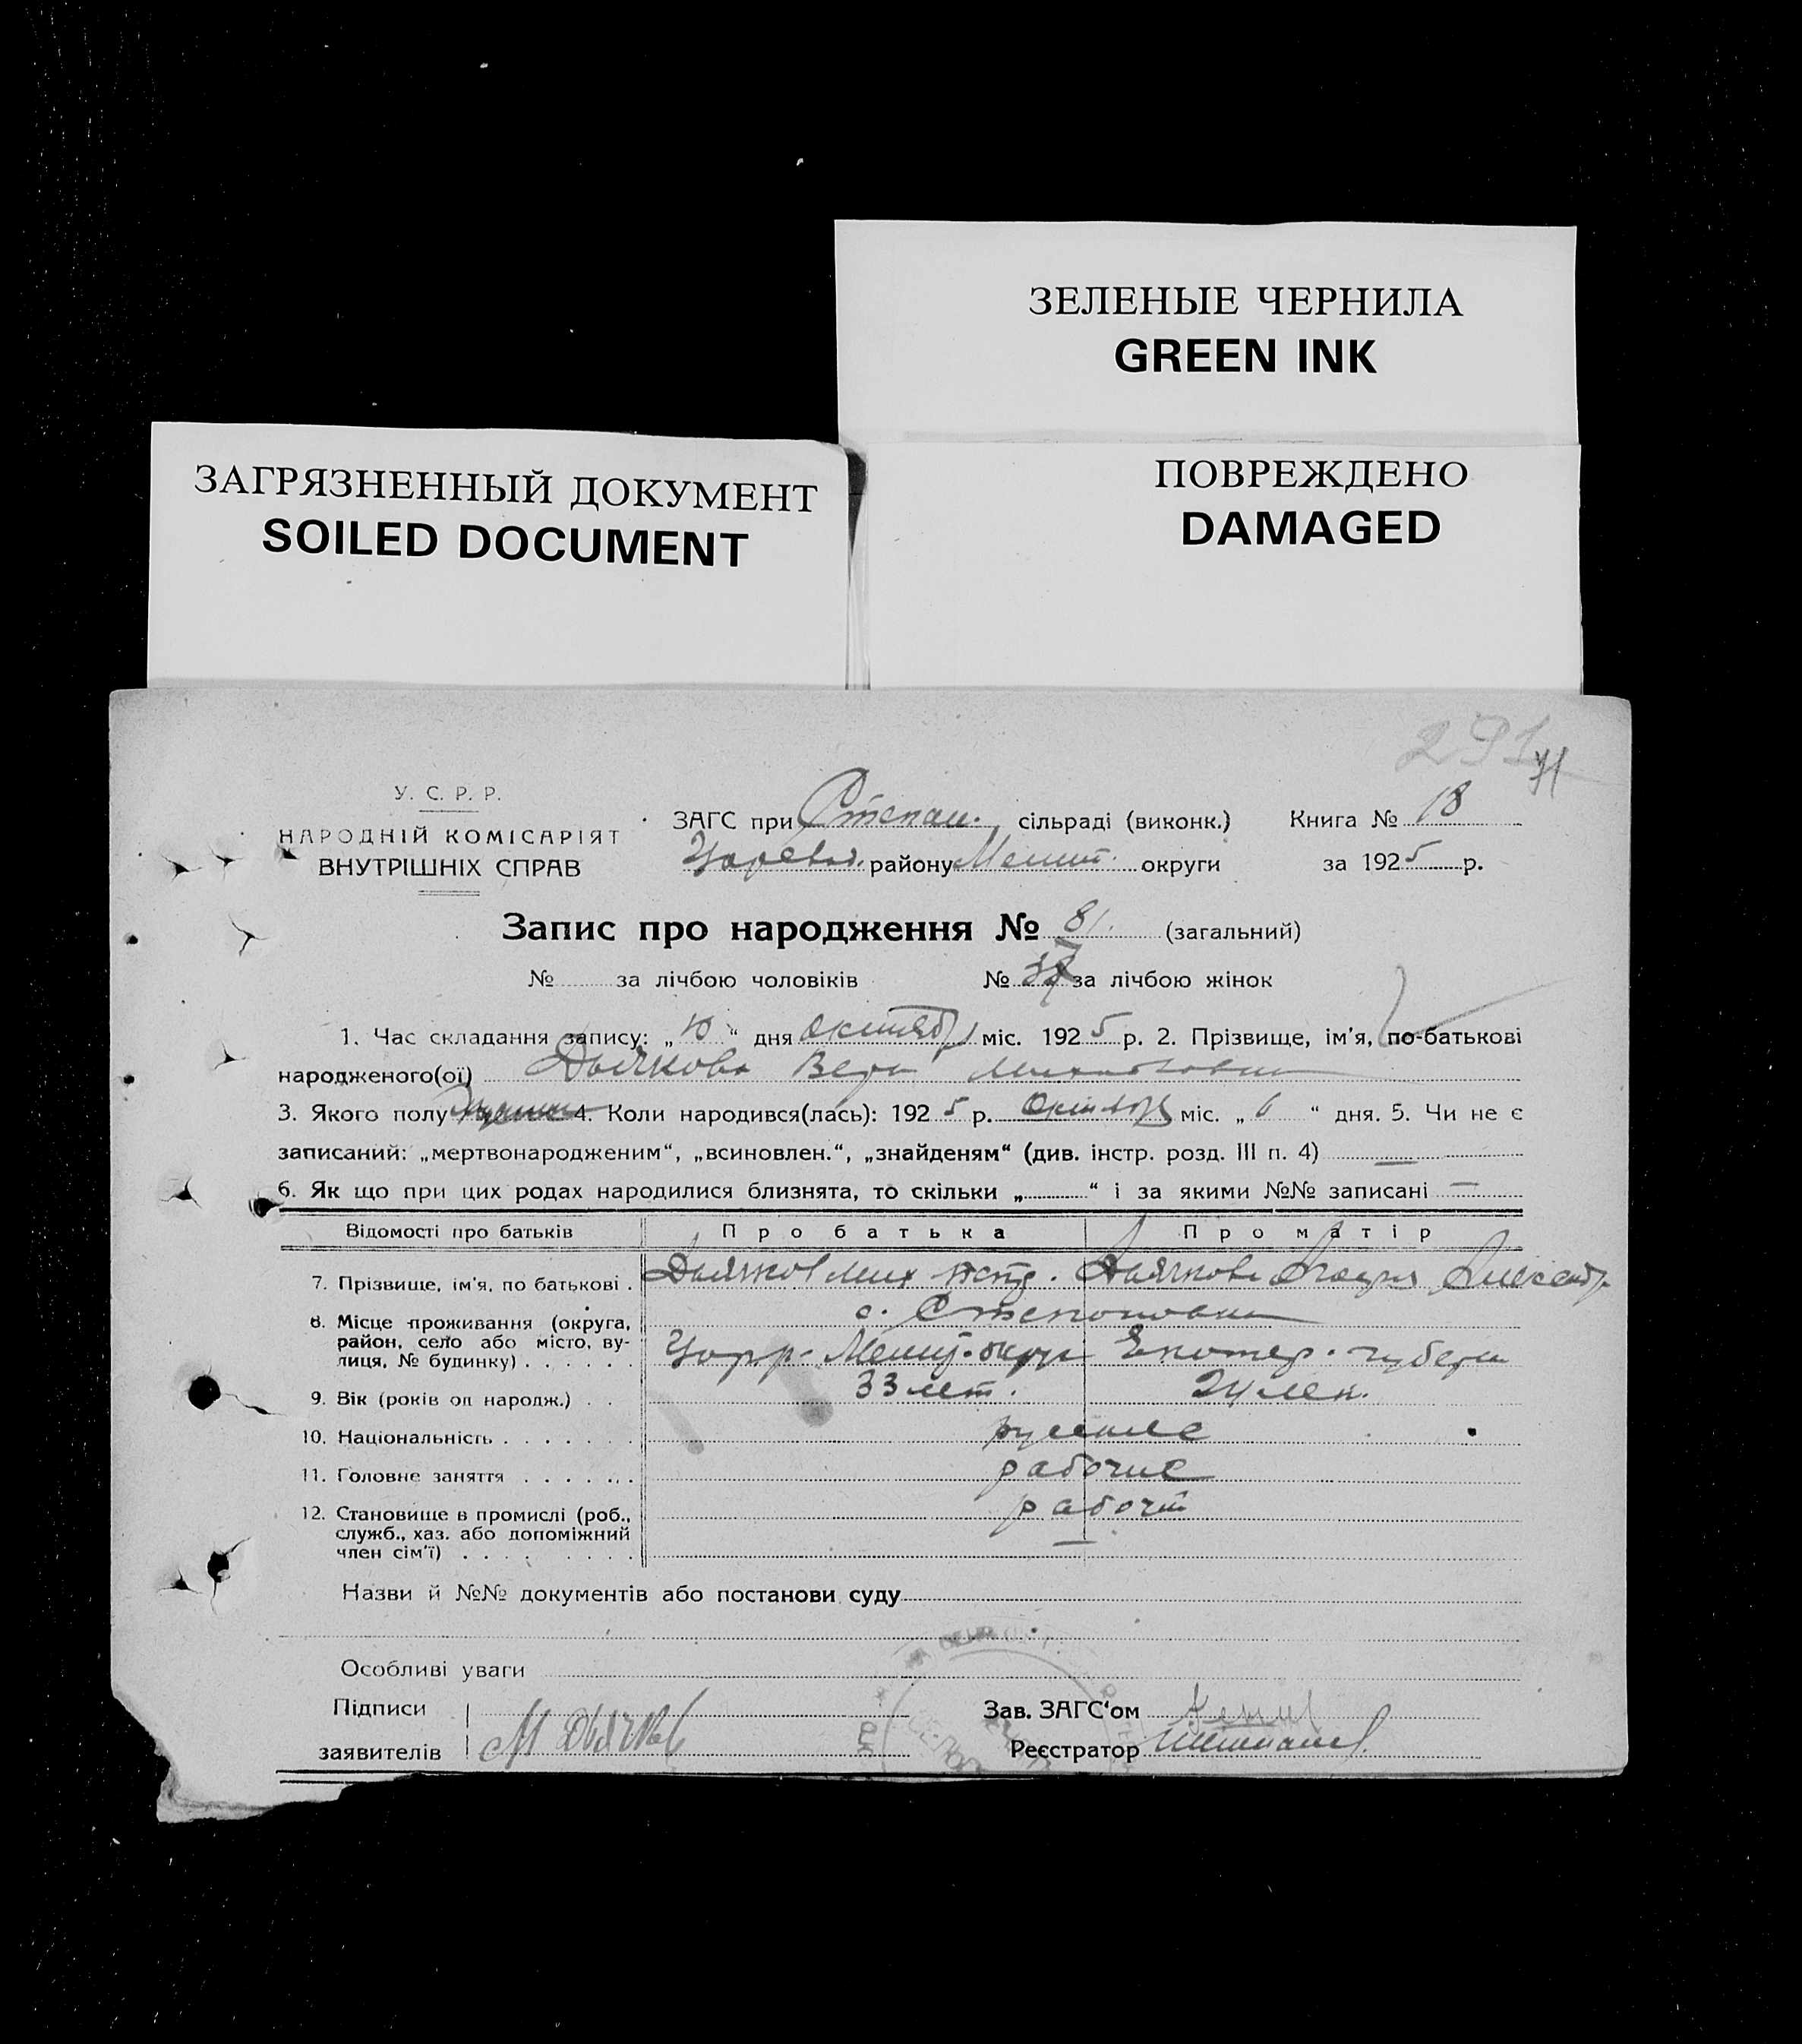 ЗЕЛЕНЫЕ ЧЕРНИЛА
GREEN INK
ЗАГРЯЗНЕННЫЙ ДОКУМЕНТ
SOILED DOCUMENT
ПОВРЕЖДЕНО
DAMAGED
291
71
У. С. Р. Р.
НАРОДНІЙ КОМІСАРІЯТ
ВНУТРІШНІХ СПРАВ
ЗАГС при Степан. сільраді (виконк.) Книга № 18
Царевод. району Мелит. округи за 1925 р.
Запис про народження № 81. (загальний)
№ за лічбою чоловіків № 37 за лічбою жінок
1. Час складання запису: „10“ дня октября міс. 1925 р. 2. Прізвище, ім'я, по-батькові
народженого(ої) Дьячкова Вера Михайловна
3. Якого полу 4. Коли народився(лась): 1925 р. Октября міс. „6“ дня. 5. Чи не є
записаний: „мертвонародженим“, „всиновлен.“, „знайденям“ (див. інстр. розд. III п. 4) —
6. Як що при цих родах народилися близнята, то скільки „ “ і за якими №№ записані —
Відомості про батьків Про батька Про матір
7. Прізвище, ім'я, по батькові . Дьячков Мих. Дьячкова Александр.
8. Місце проживання (округа, район, село або місто, вулиця, № будинку) . . . . . . с. Степановка
Царр. Мелит. округ Екатер. губерн
9. Вік (років од народж.) . . 33 лет. 24 лет.
10. Національність . . . . . . . русские
11. Головне заняття . . . . . . . рабочие
12. Становище в промислі (роб., служб., хаз. або допоміжний член сім'ї) . . . . . . . . рабоч
—
Назви й №№ документів або постанови суду
Особливі уваги
Підписи
заявителів М Дьячков
Зав. ЗАГС'ом
Реєстратор